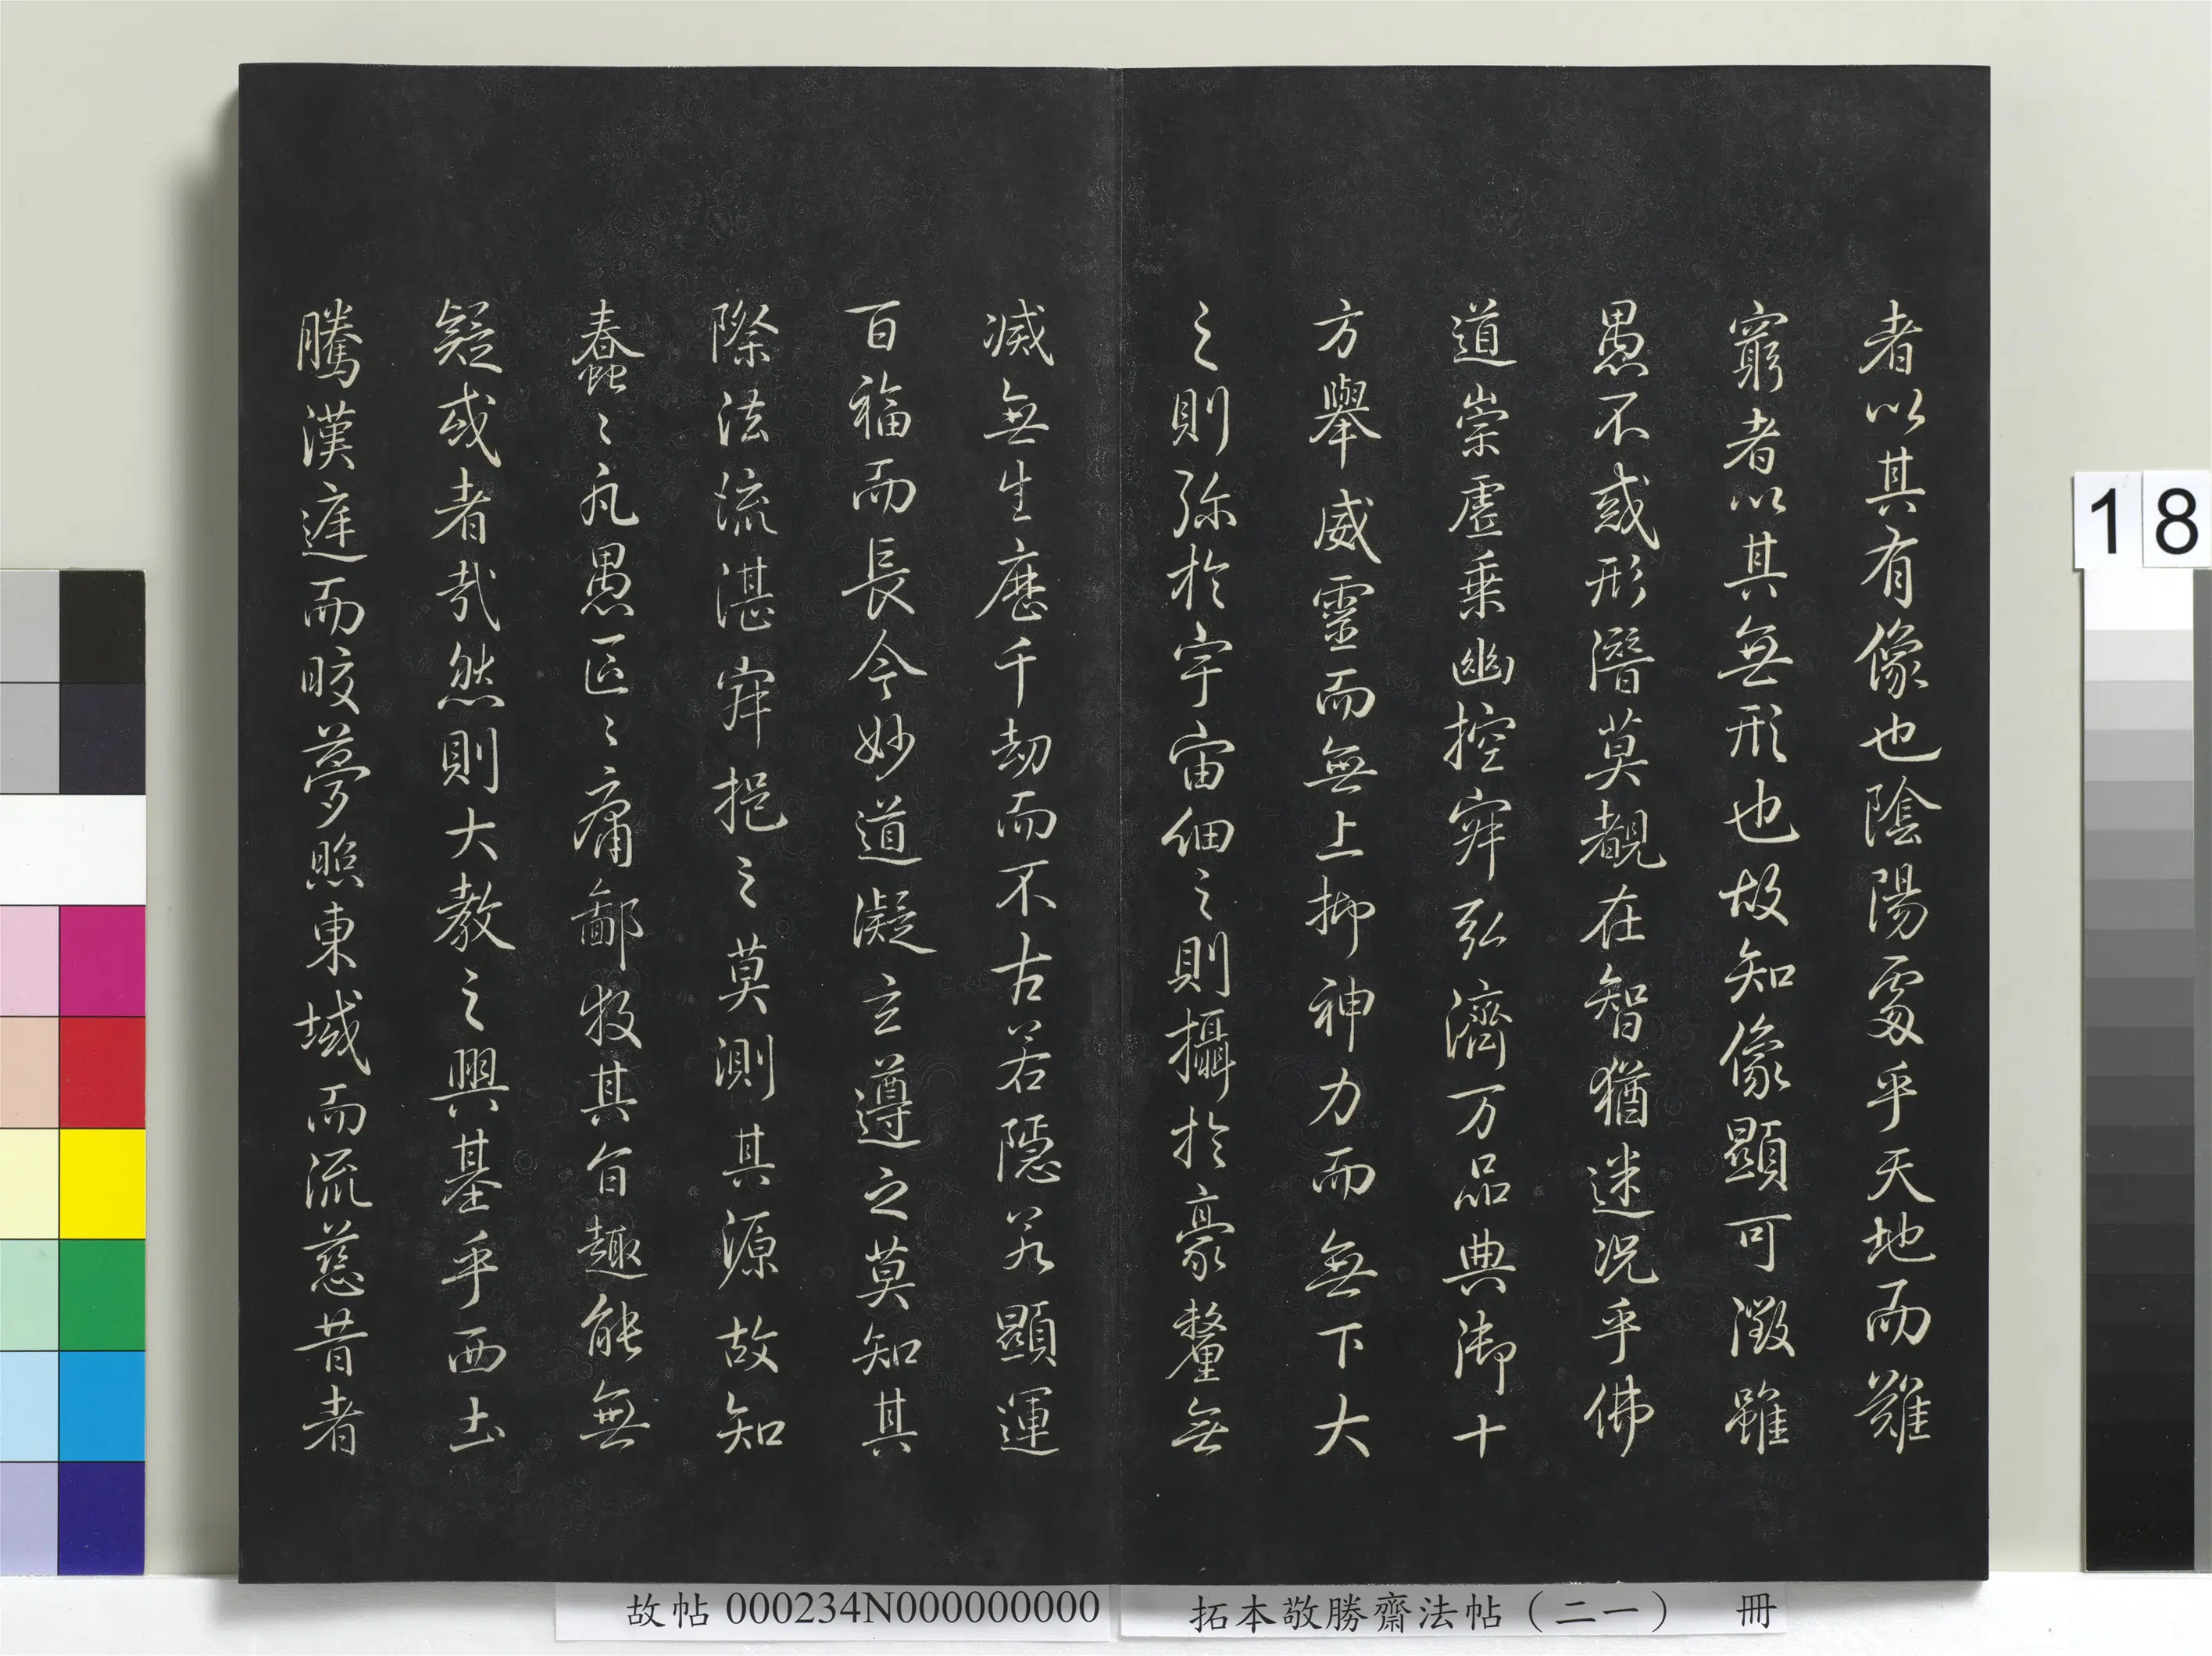 者以其有像也陰陽處乎天地而難
窮者以其無形也故知像顯可徵雖
愚不惑形潛莫覩在智猶迷況乎佛
道崇虛乘幽控寂弘濟万品典御十
方舉威靈而無上抑神力而無下大
之則弥於宇宙細之則攝於豪釐無
滅無生歷千劫而不古若隱若顯運
百福而長今妙道凝玄遵之莫知其
際法流湛寂挹之莫測其源故知
蠢〻凡愚區〻庸鄙投其旨趣能無
疑或者哉然則大教之興基乎西土
騰漢庭而晈夢照東域而流慈昔者
18
故帖000234N000000000
拓本敬勝齋法帖（二一） 冊